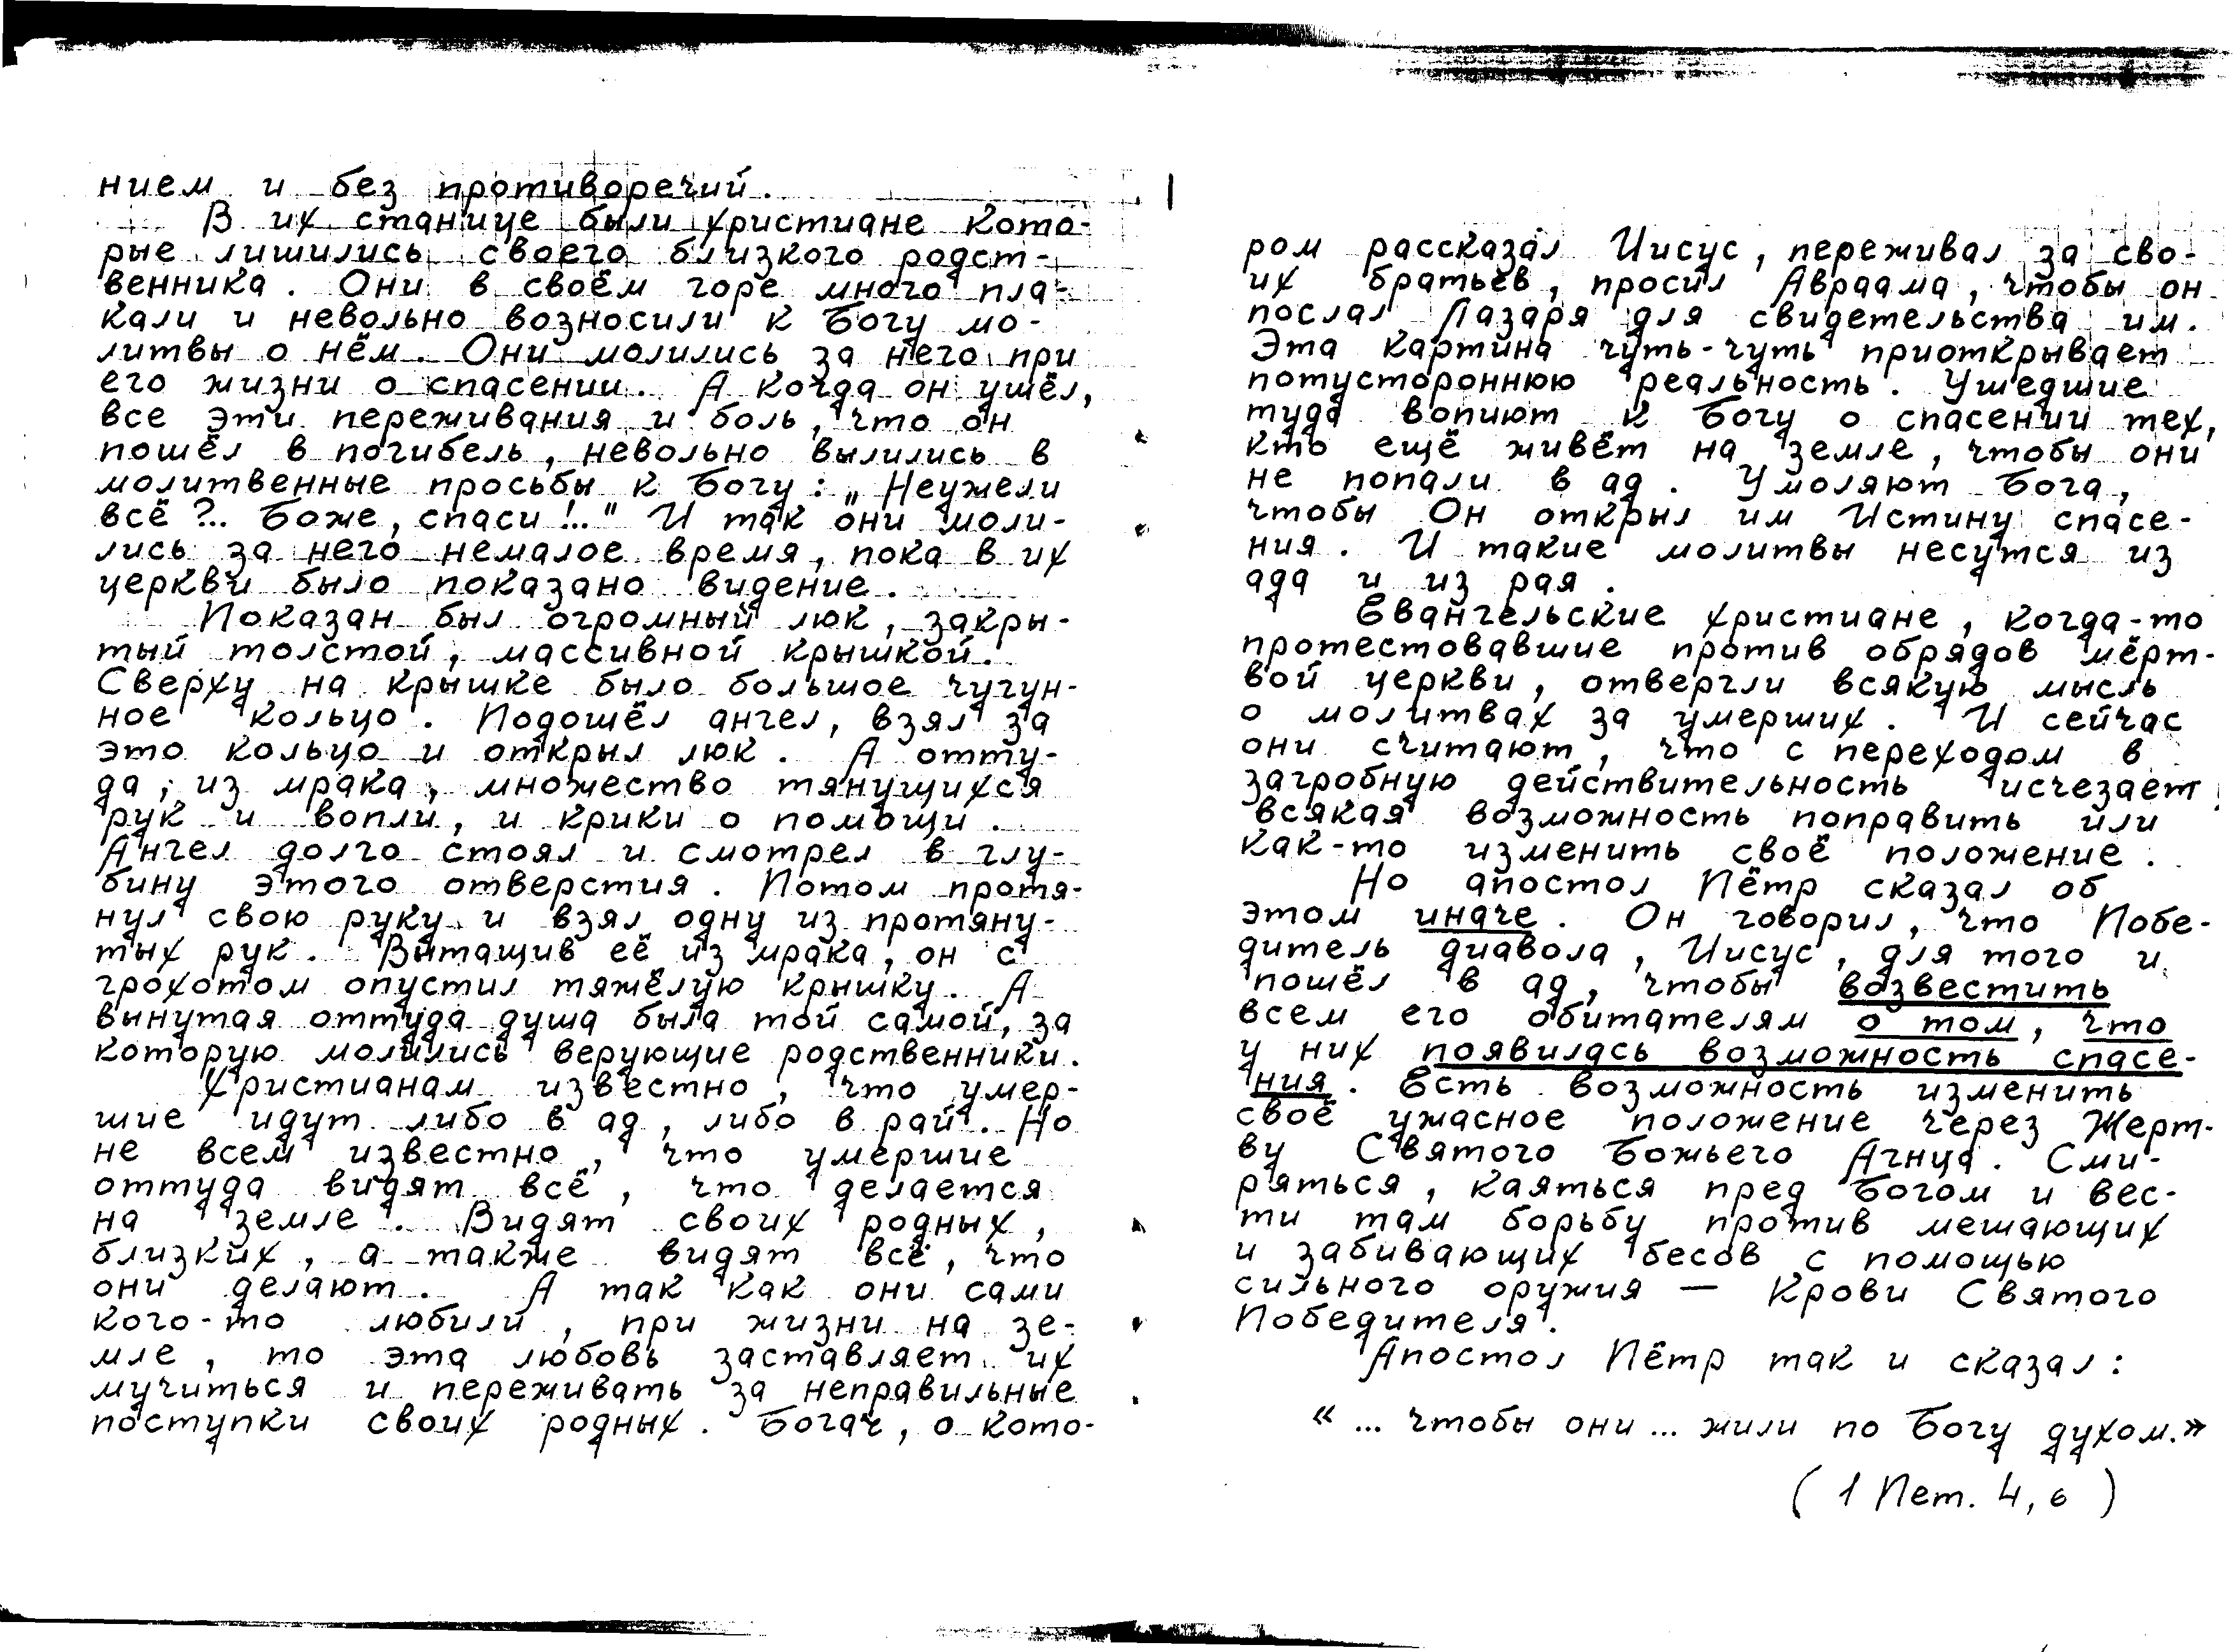 нием и без противоречий.
В их станице были христиане кото-
рые лишились своего близкого родст-
венника. Они в своём горе много пла-
кали и невольно возносили к Богу мо-
литвы о нём. Они молились за него при
его жизни о спасении. А когда он ушёл,
все эти переживания и боль, что он
пошёл в погибель, невольно вылились в
молитвенные просьбы к Богу: „Неужели
всё?.. Боже, спаси!.." И так они моли-
лись за него немалое время, пока в их
церкви было показано видение.
Показан был огромный люк, закры-
тый толстой, массивной крышкой.
Сверху на крышке было большое чугун-
ное кольцо. Подошёл ангел, взял за
это кольцо и открыл люк. А отту-
да, из мрака, множество тянущихся
рук и вопли, и крики о помощи.
Ангел долго стоял и смотрел в глу-
бину этого отверстия. Потом протя-
нул свою руку и взял одну из протяну-
тых рук. Вытащив её из мрака, он с
грохотом опустил тяжёлую крышку. А
вынутая оттуда душа была той самой, за
которую молились верующие родственники.
Христианам известно, что умер-
шие идут либо в ад, либо в рай. Но
не всем известно, что умершие
оттуда видят всё, что делается
на земле. Видят своих родных,
близких, а также видят всё, что
они делают. А так как они сами
кого-то любили, при жизни на зе-
мле, то эта любовь заставляет их
мучиться и переживать за неправильные
поступки своих родных. Богач, о кото-
ром рассказал Иисус, переживал за сво-
их братьев, просил Авраама, чтобы он
послал Лазаря для свидетельства им.
Эта картина чуть-чуть приоткрывает
потустороннюю реальность. Ушедшие
туда вопиют к Богу о спасении тех,
кто ещё живёт на земле, чтобы они
не попали в ад. Умоляют Бога,
чтобы Он открыл им Истину спасе-
ния. И такие молитвы несутся из
ада и из рая.
Евангельские христиане, когда-то
протестовавшие против обрядов мёрт-
вой церкви, отвергли всякую мысль
о молитвах за умерших. И сейчас
они считают, что с переходом в
загробную действительность исчезает
всякая возможность поправить или
как-то изменить своё положение.
Но апостол Пётр сказал об
этом иначе. Он говорил, что Побе-
дитель диавола, Иисус, для того и
пошёл в ад, чтобы возвестить
всем его обитателям о том, что
у них появилась возможность спасе-
ния. Есть возможность изменить
своё ужасное положение через Жерт-
ву Святого Божьего Агнца. Сми-
ряться, каяться пред Богом и вес-
ти там борьбу против мешающих
и забивающих бесов с помощью
сильного оружия — Крови Святого
Победителя.
Апостол Пётр так и сказал:
«... чтобы они ... жили по Богу духом.»
(1 Пет. 4, 6)